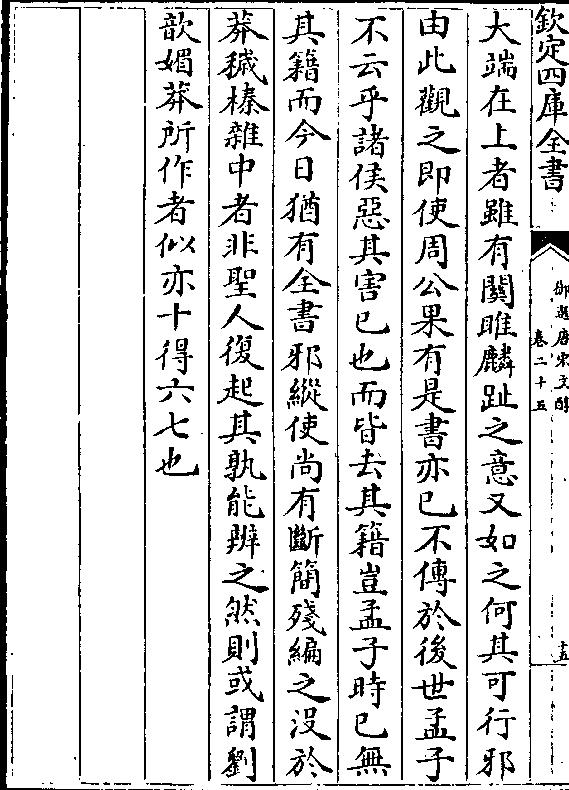 欽定四庫全書
御選唐宋文醇
卷二十五
十五
大端在上者雖有關雎麟趾之意又如之何其可行邪
由此觀之即使周公果有是書亦已不傳於後世孟子
不云乎諸侯惡其害已也而皆去其籍豈孟子時已無
其籍而今日猶有全書邪縱使尚有斷簡殘編之没於
莽穢榛雜中者非聖人復起其孰能辨之然則或謂劉
歆媚莽所作者似亦十得六七也